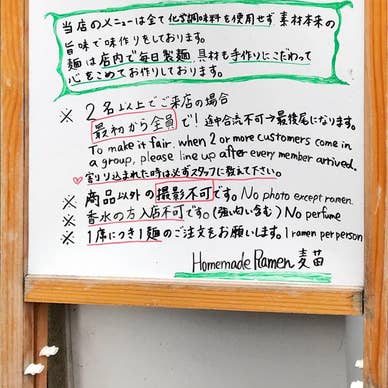 当店のメニューは全て化学調味料を使用せず素材本来の
旨味で味作りをしております。
麺は店内で毎日製麺、具材も手作りにこだわって
心をこめてお作りしております。
※ 2名以上でご来店の場合
最初から全員で! 途中合流不可→最後尾になります。
To make it fair, when 2 or more customers come in
a group, please line up after every member arrived.
♡割り込まれた時は必ずスタッフに教えて下さい。
※ 商品以外の撮影不可です。No photo except ramen.
※ 香水の方入店不可です。(強い匂い含む) No perfume
※ 1席につき1麺のご注文をお願いします。1 ramen per person
Homemade Ramen 麦苗